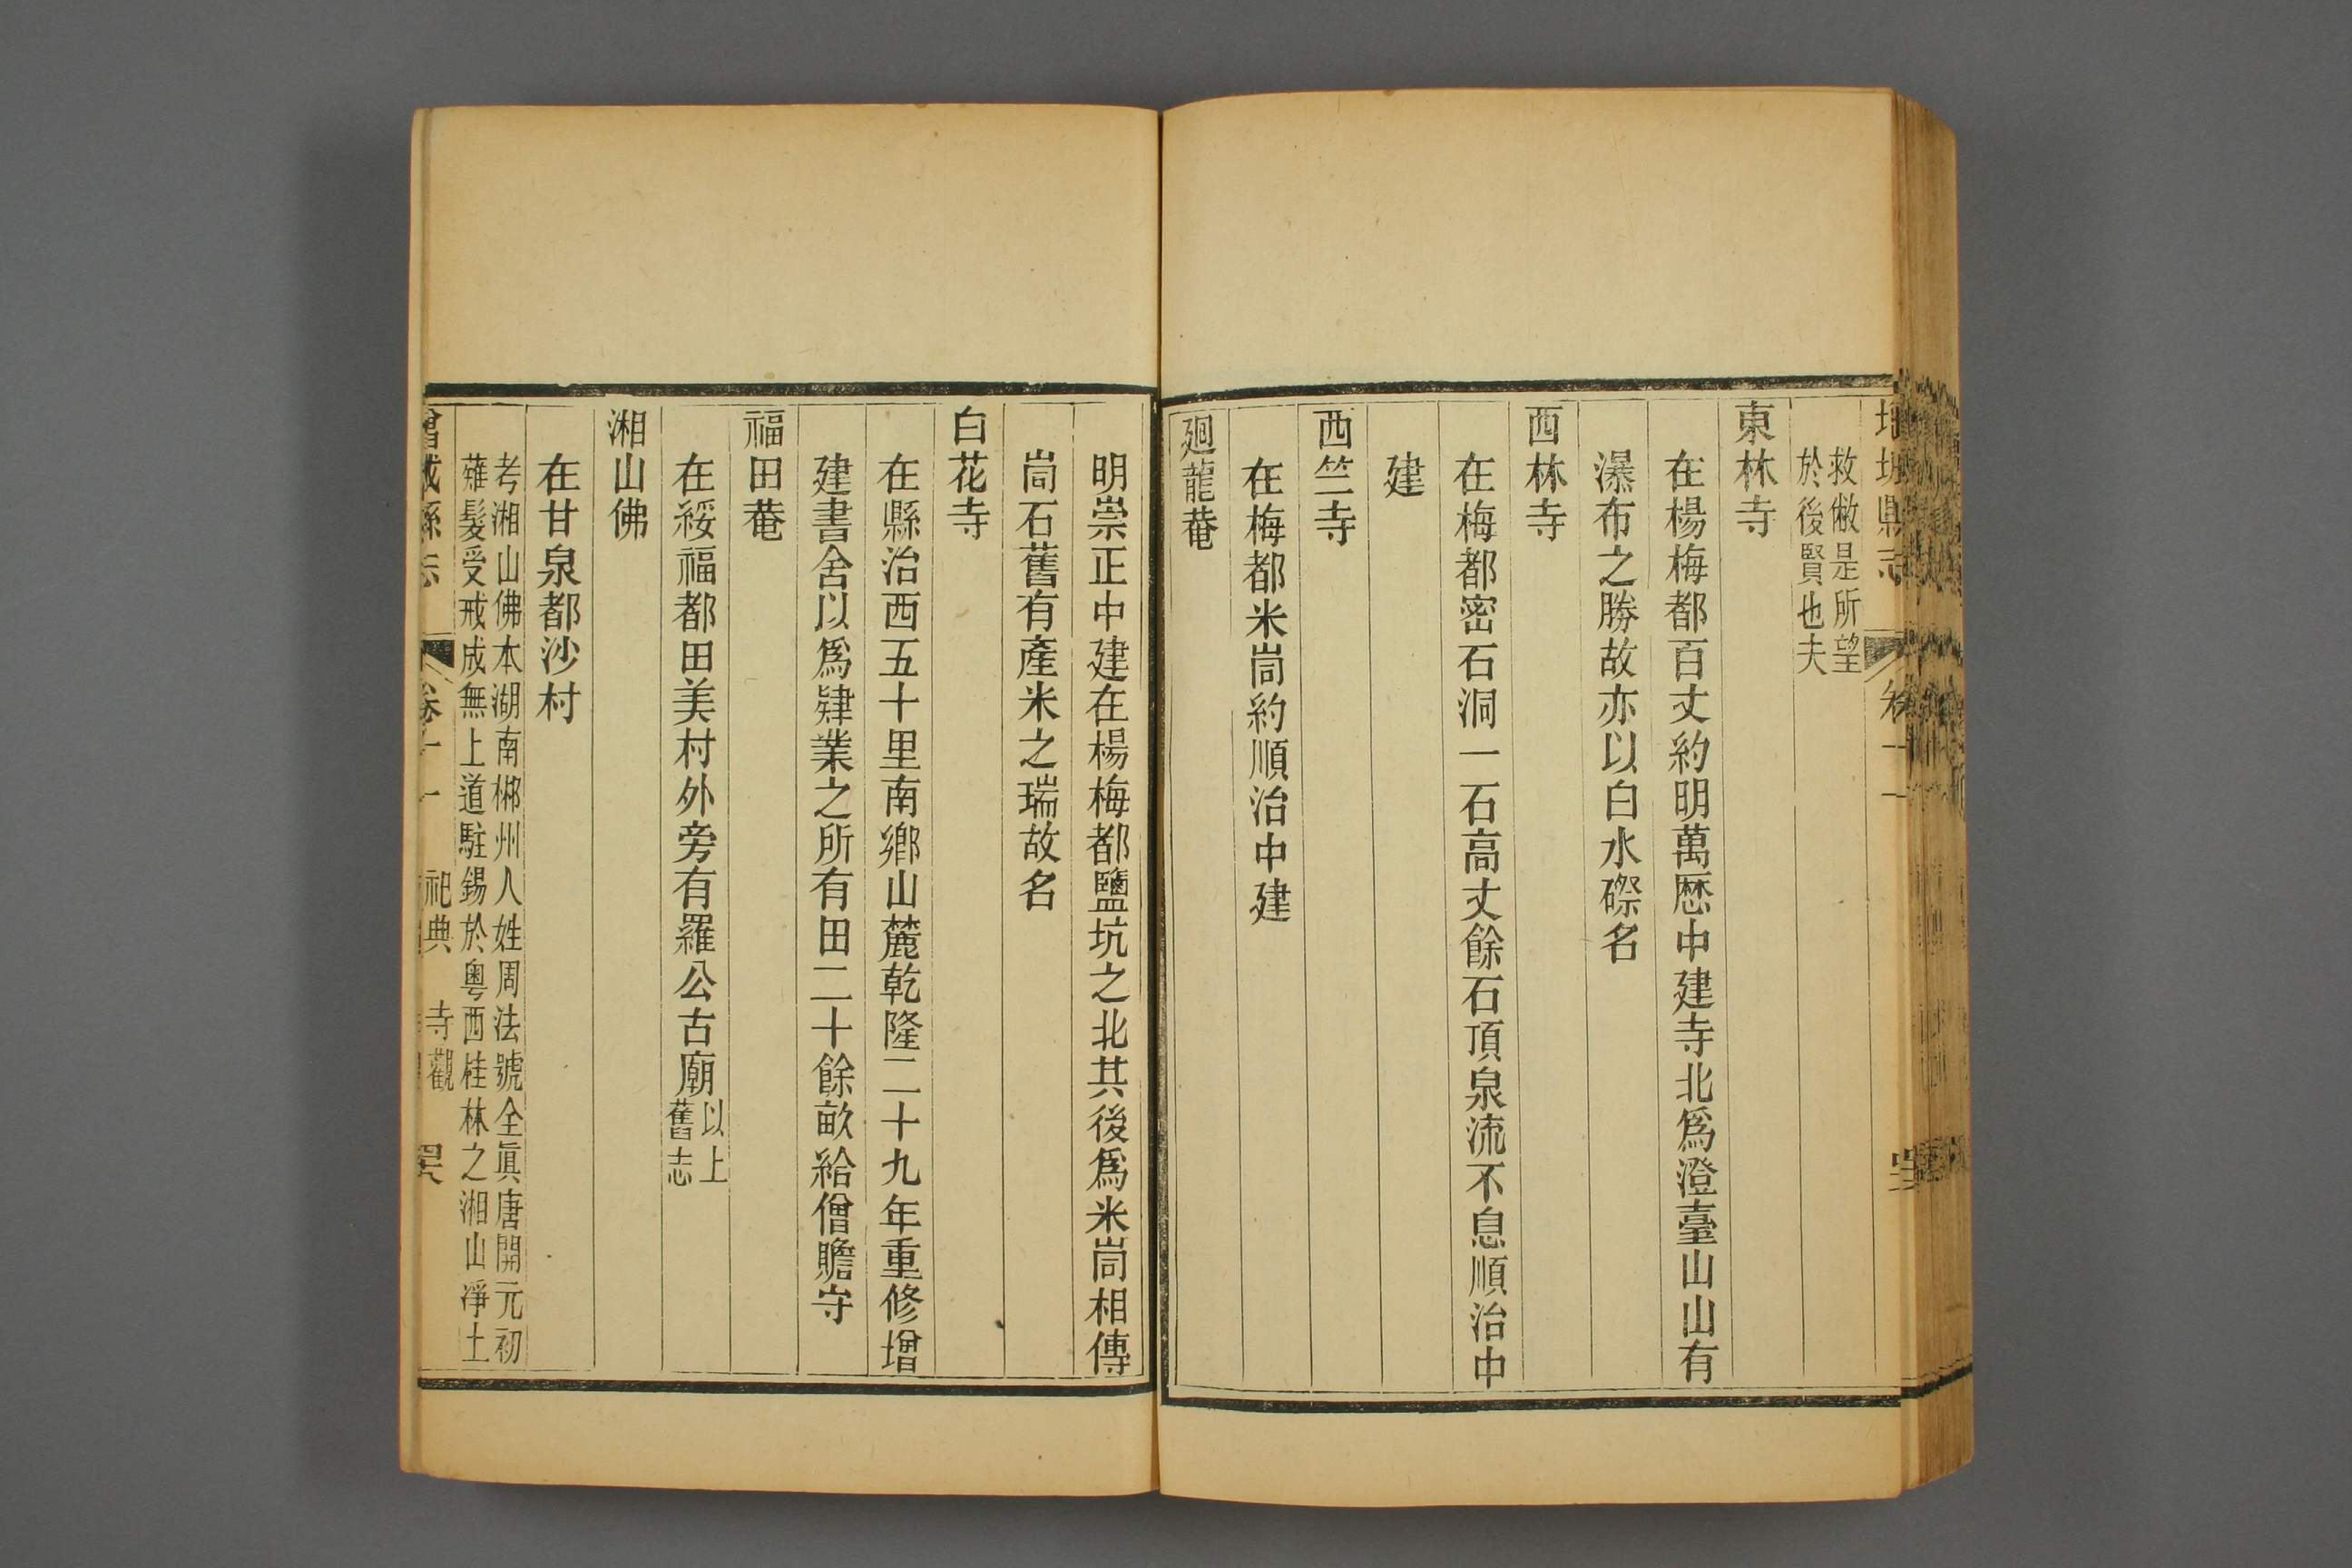 增城縣志
卷十一
救敝是所望
於後賢也夫
東林寺
在楊梅都百丈約明萬歷中建寺北爲澄臺山山有
瀑布之勝故亦以白水磜名
西林寺
在梅都密石洞一石高丈餘石頂泉流不息順治中
建
西竺寺
在梅都米峝約順治中建
廻龍菴
明崇正中建在楊梅都鹽坑之北其後爲米峝相傳
峝石舊有產米之瑞故名
白花寺
在縣治西五十里南鄉山麓乾隆二十九年重修增
建書舍以爲肄業之所有田二十餘畝給僧贍守
福田菴
在綏福都田美村外旁有羅公古廟以上
舊志
湘山佛
在甘泉都沙村
考湘山佛本湖南郴州人姓周法號全眞唐開元初
薙髮受戒成無上道駐錫於粵西桂林之湘山淨土
增城縣志
卷十一
祀典
寺觀